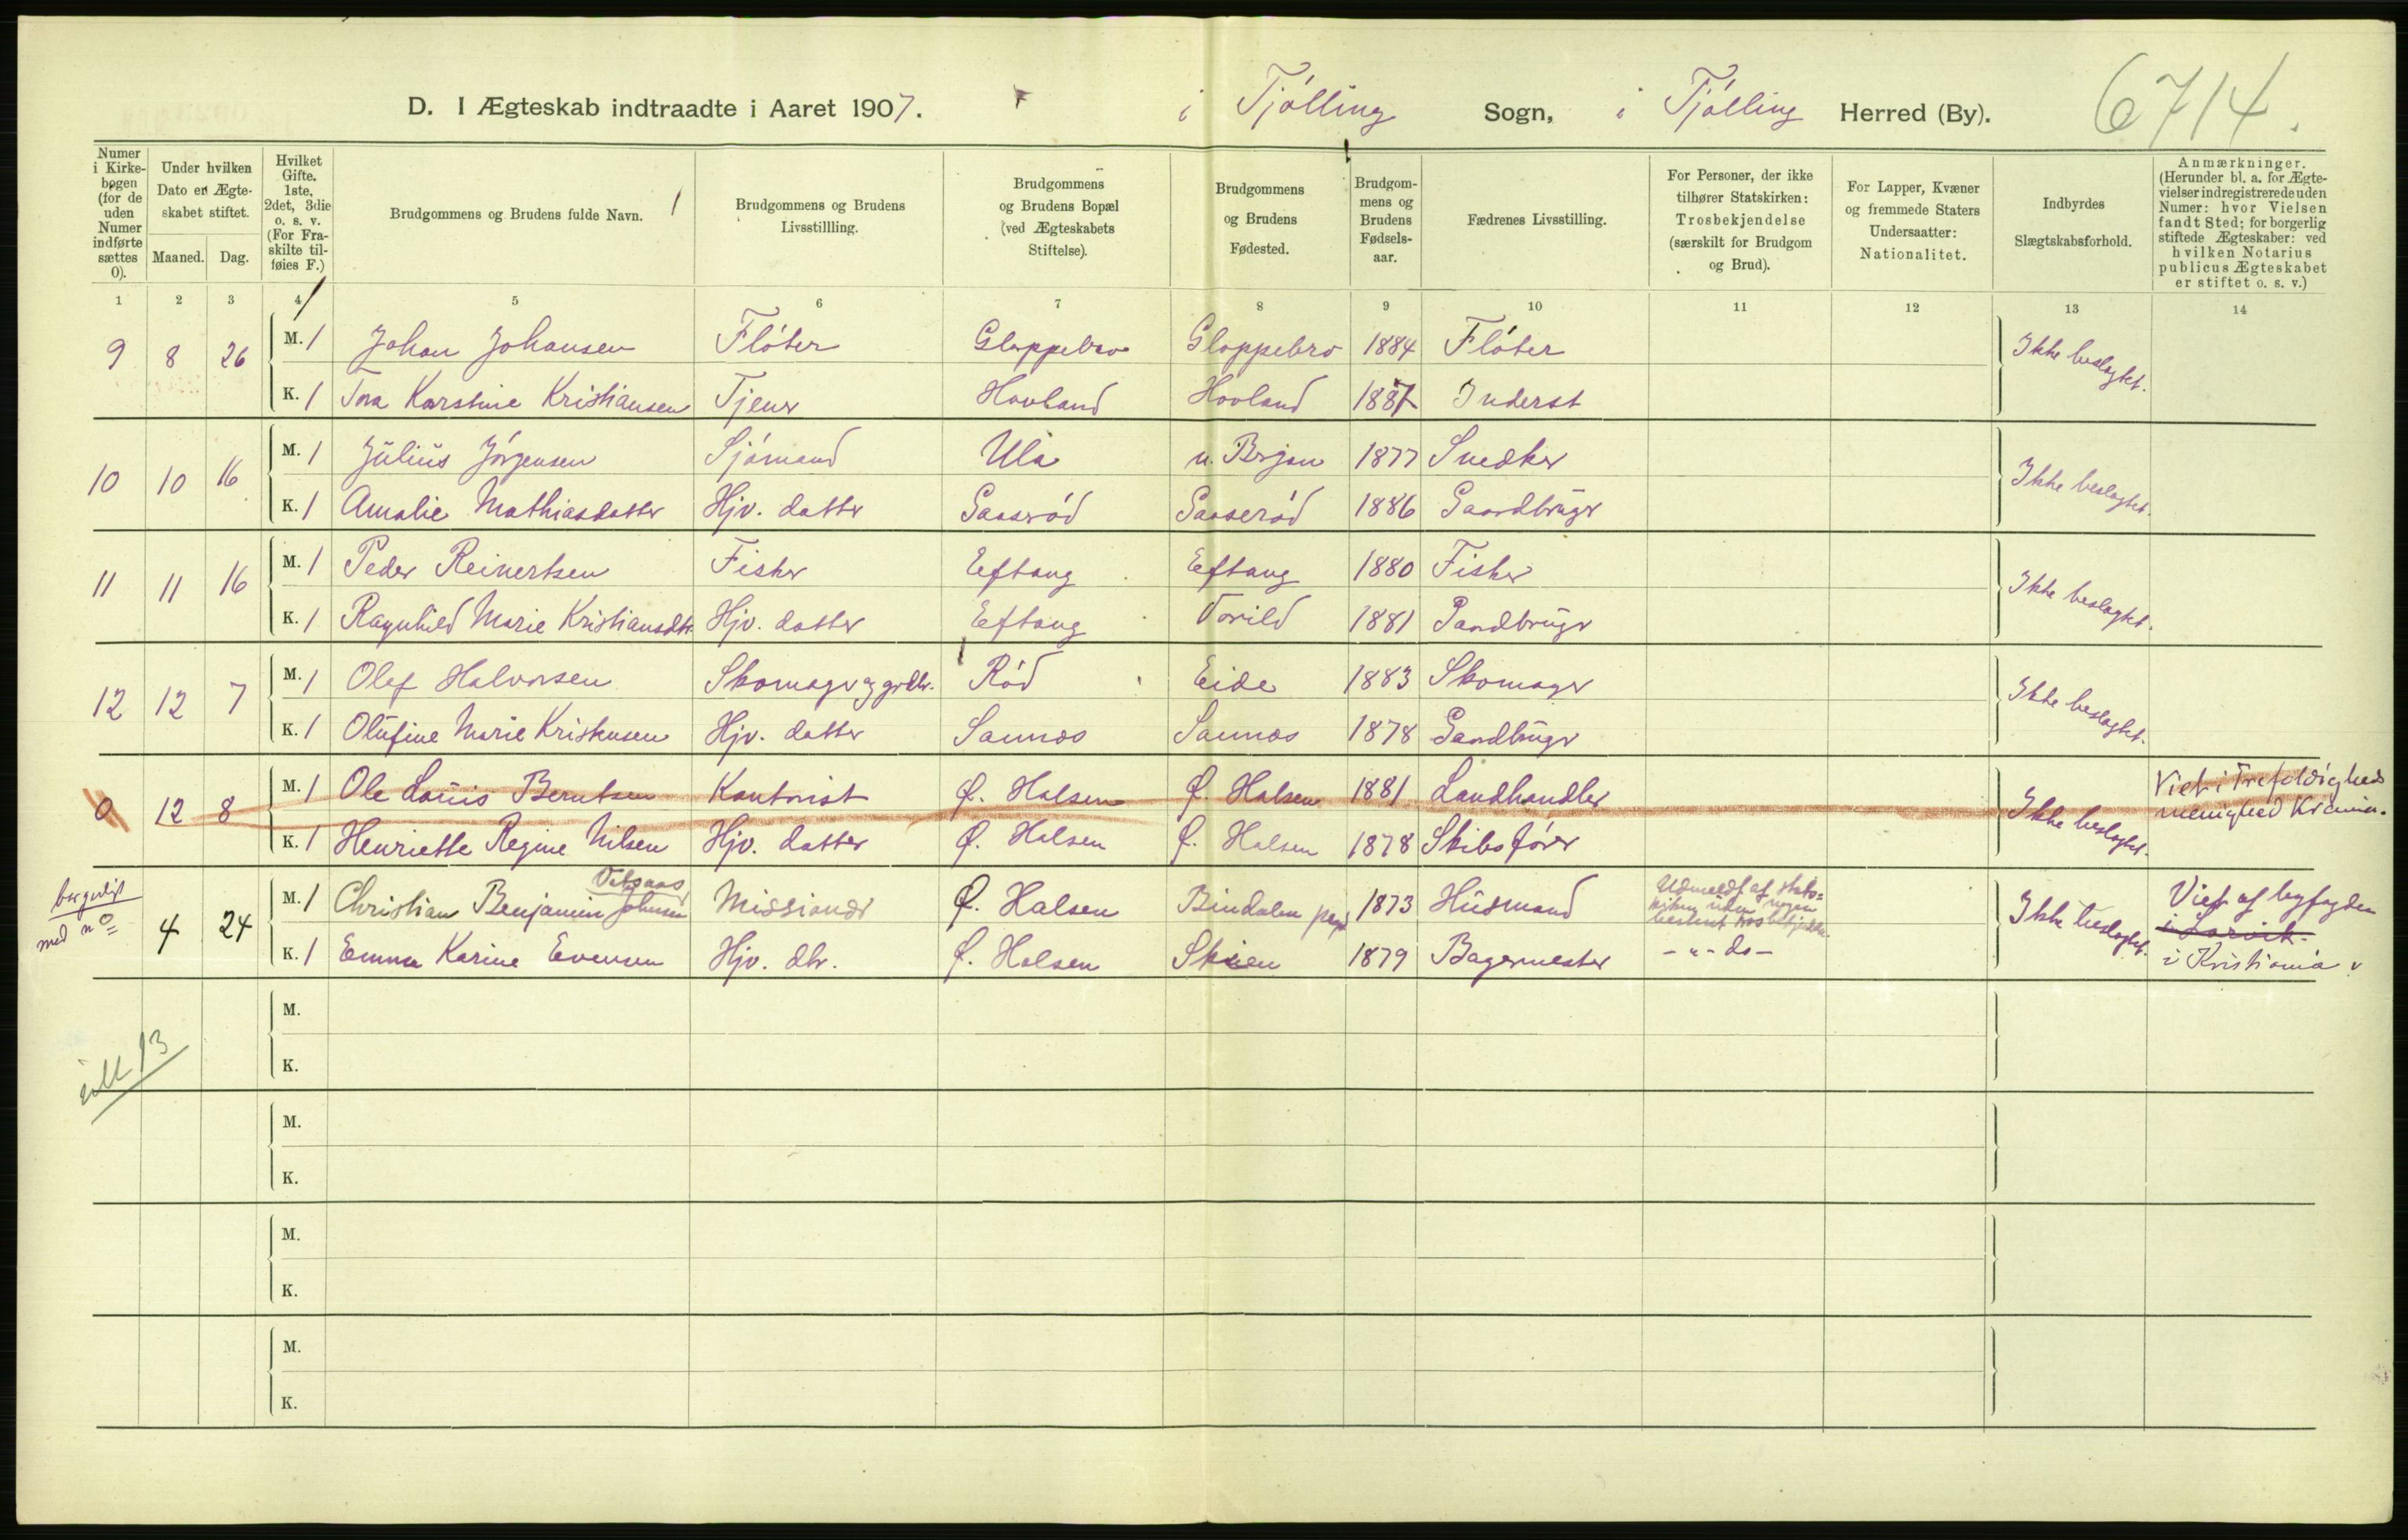 6714.
D. I Ægteskab indtraadte i Aaret 1907. i Tjølling Sogn, i Tjølling Herred (By).
Numer i Kirkebogen (for de uden Numer indførte sættes 0).
Under hvilken Dato er Ægteskabet stiftet.
Maaned. Dag.
Hvilket Gifte. 1ste, 2det, 3die o. s. v. (For Fraskilte tilføies F.)
Brudgommens og Brudens fulde Navn.
Brudgommens og Brudens Livsstillling.
Brudgommens og Brudens Bopæl (ved Ægteskabets Stiftelse).
Brudgommens og Brudens Fødested.
Brudgommens og Brudens Fødselsaar.
Fædrenes Livsstilling.
For Personer, der ikke tilhører Statskirken: Trosbekjendelse (særskilt for Brudgom og Brud).
For Lapper, Kvæner og fremmede Staters Undersaatter: Nationalitet.
Indbyrdes Slægtskabsforhold.
Anmærkninger. (Herunder bl. a. for Ægtevielser indregistrerede uden Numer: hvor Vielsen fandt Sted; for borgerlig stiftede Ægteskaber: ved hvilken Notarius publicus Ægteskabet er stiftet o. s. v.)
1 2 3 4 5 6 7 8 9 10 11 12 13 14
9 8 26 M. 1 Johan Johansen Fløter Gloppebro Gloppebro 1884 Fløter Ikke beslægtet.
K. 1 Tora Karstine Kristiansen Tjener Hovland Hovland 1887 Inderst
10 10 16 M. 1 Julius Jørgensen Sjømand Ula n. Berjan 1877 Snedker Ikke beslægtet.
K. 1 Amalie Mathiasdatter Hjv. datter Gaaserød Gaaserød 1886 Gaardbruger
11 11 16 M. 1 Peder Reinertsen Fisker Eftang Eftang 1880 Fisker Ikke beslægtet.
K. 1 Ragnhild Marie Kristiansdtr. Hjv. datter Eftang Torild 1881 Gaardbruger
12 12 7 M. 1 Olef Halvorsen Skomager og grdbr. Rød Eide 1883 Skomager Ikke beslægtet.
K. 1 Olufine Marie Kristensen Hjv. datter Sannæs Sannæs 1878 Gaardbruger
0 12 8 M. 1 Ole Louis Berntsen Kontorist Ø. Halsen Ø. Halsen 1881 Landhandler Ikke beslægtet. Viet i Trefoldigheds
K. 1 Henriette Regine Nilsen Hjv. datter Ø. Halsen Ø. Halsen 1878 Skibsfører menighed Kr.ania.
borgerligt
med n 0
4 24 M. 1 Christian Benjamin Johnsen Missionær Ø. Halsen Bindalen 1873 Husmand Udmeldt af statskirken uden nogen bestemt trosbekjendelse. Ikke beslægtet. Viet af byfogden
i Larvik.
K. 1 Emma Karine Evensen Hjv. dtr. Ø. Halsen Skien 1879 Bagermester - " - do - i Kristiania
M.
K.
13
M.
K.
M.
K.
M.
K.